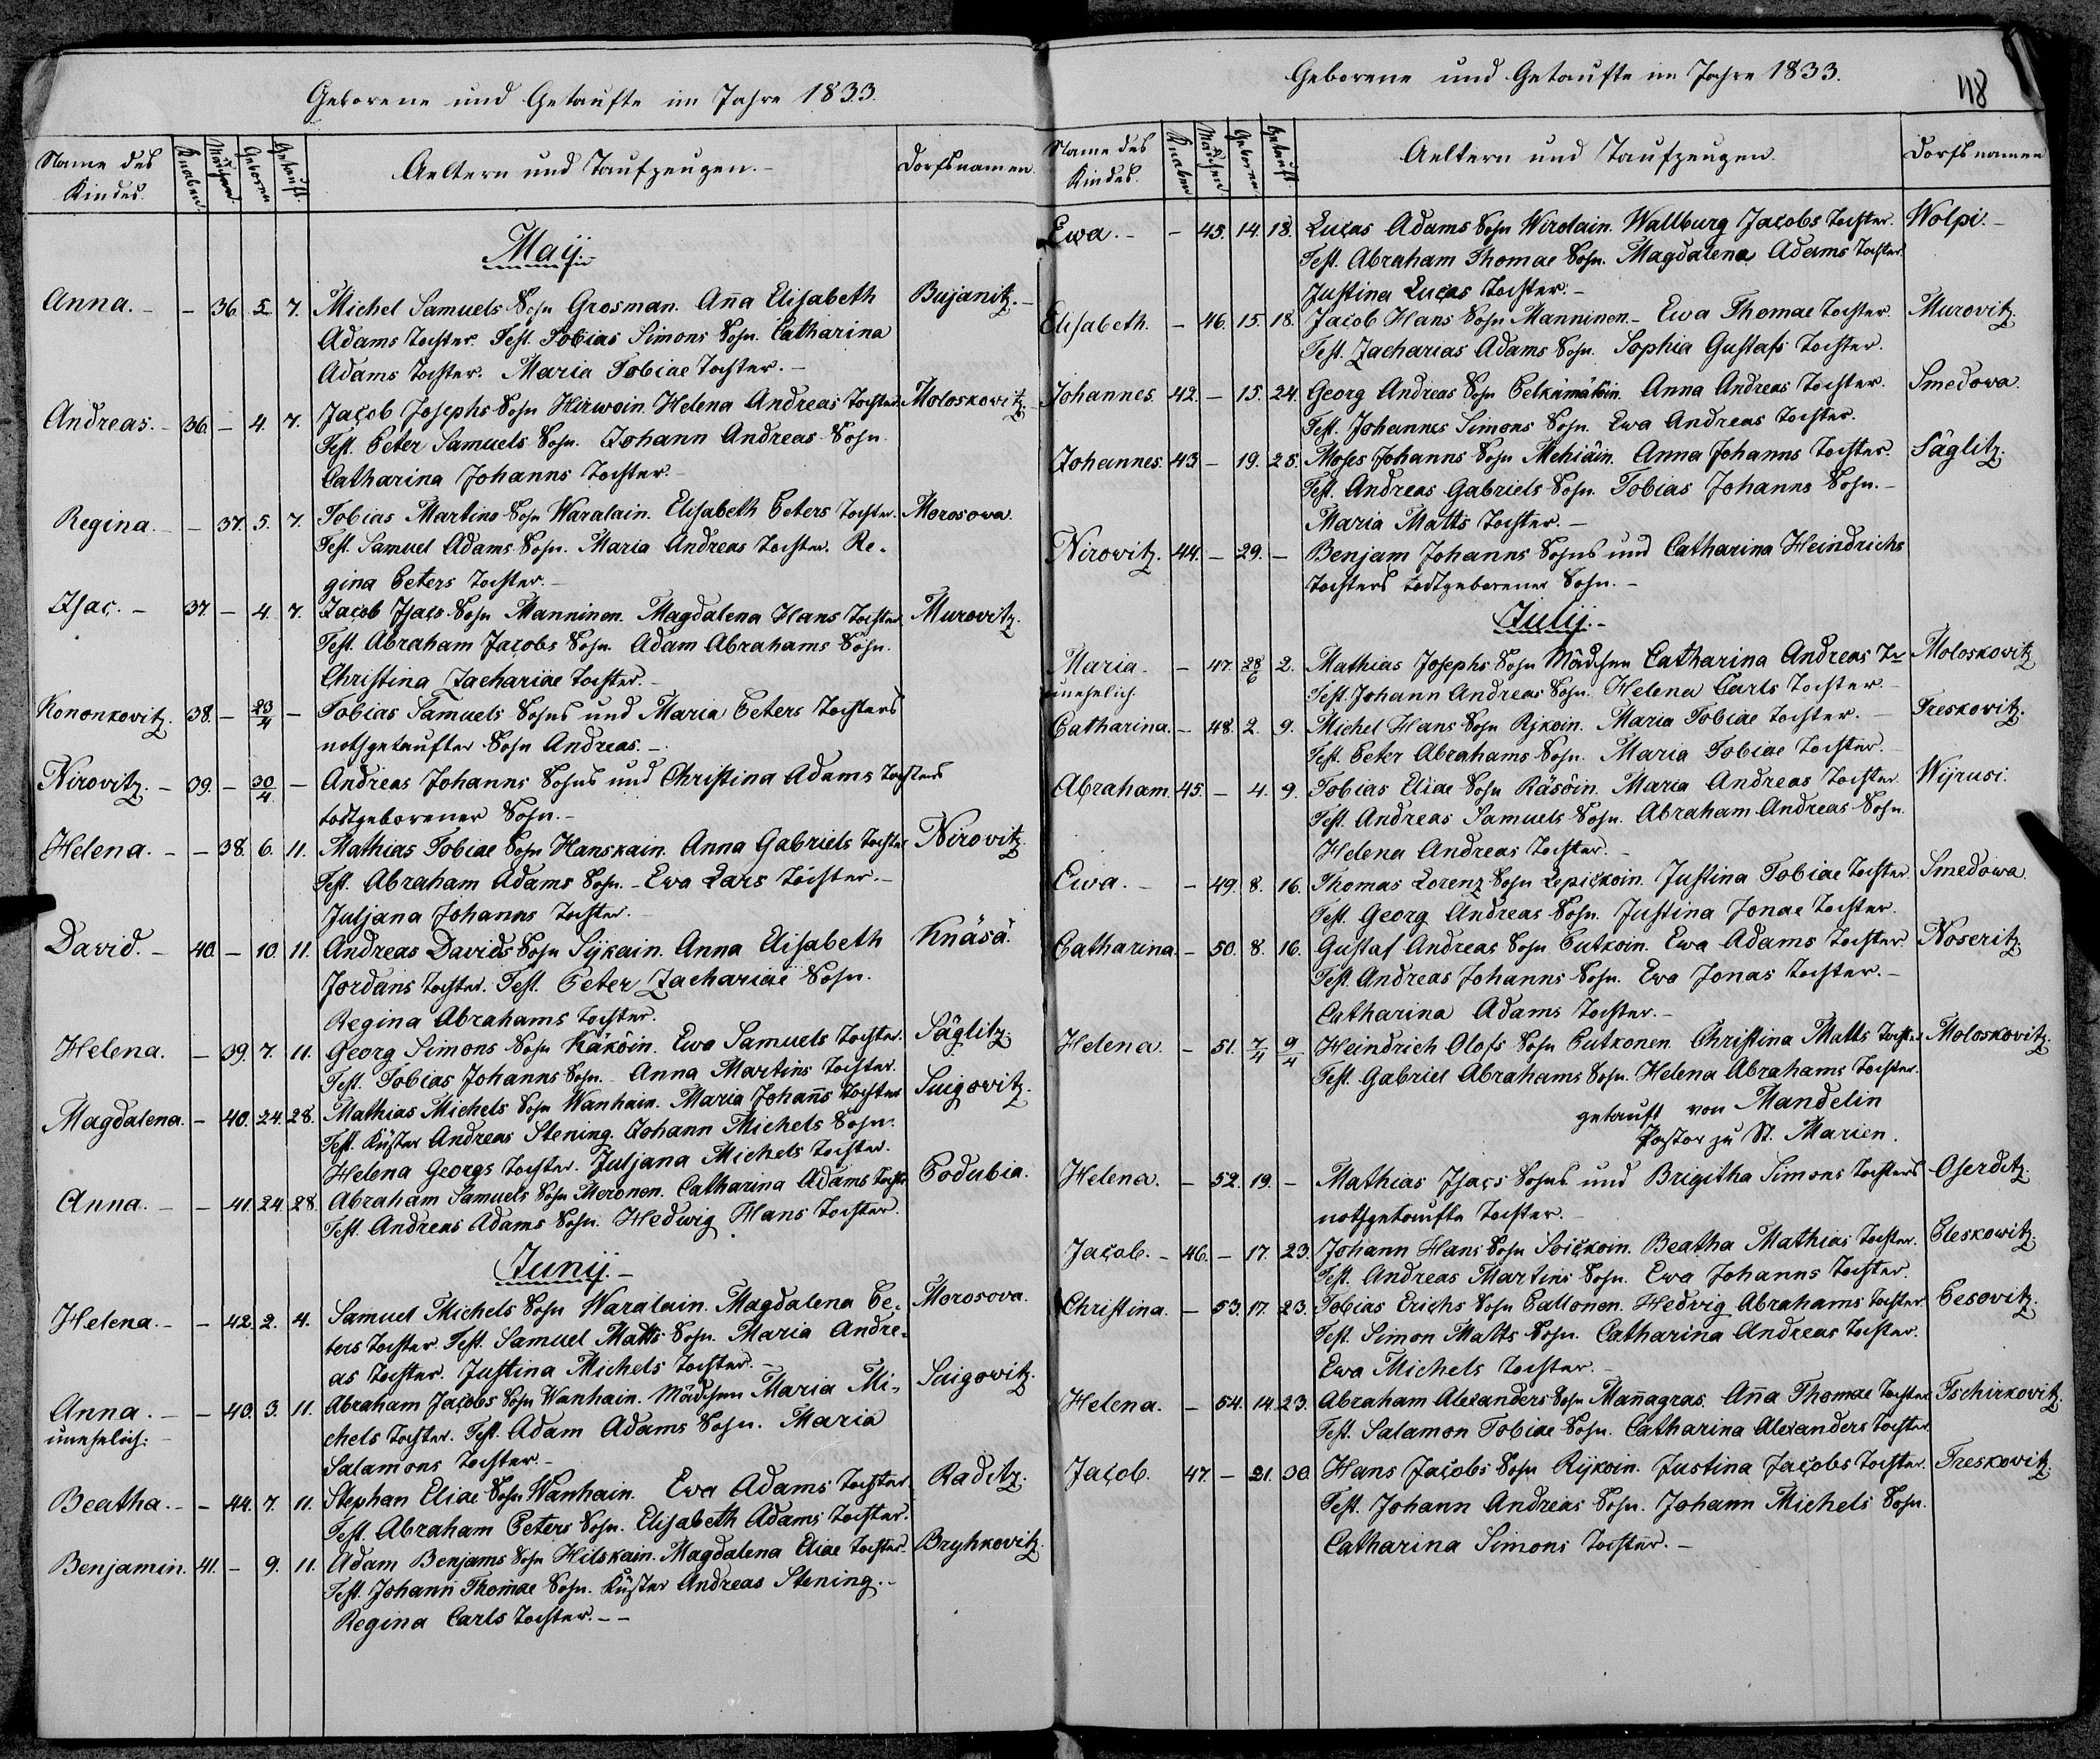 Geborene und Getaufte im Jahre 1833.
Name des Kindes. Knaben. Mädchen. Geboren Getauft. Aeltern und Taufzeugen.- Dorfsnamen.
Maij.-
Anna. - - 36. 5 7. Michel Samuels Sohn Grosman. Aña Elisabeth Bujanitz.-
Adams Tochter. Test. Tobias Simons Sohn. Catharina
Adams Tochter. Maria Tobiae Tochter.-
Andreas.- 36. - 4. 7. Jacob Josephs Sohn Hirwoin. Helena Andreas Tochter. Moloskowitz.
Test. Peter Samuels Sohn. Johann Andreas Sohn.
Catharina Johanns Tochter.-
Regina. - - 37. 5. 7. Tobias Martins Sohn Waralain. Elisabeth Peters Tochter. Morosowa.
Test. Samuel Adams Sohn. Maria Andreas Tochter. Re-
gina Peters Tochter.-
Isac. - 37. - 4. 7. Jacob Isacs Sohn Manninen. Magdalena Hans Tochter. Murovitz.
Test. Abraham Jacobs Sohn. Adam Abrahams Sohn.
Christina Zachariae Tochter.-
Kononkovitz. 38. - 23/4 - Tobias Samuels Sohns und Maria Peters Tochters
nothgetaufter Sohn Andreas.-
Nirovitz. - 39. - 30/4 - Andreas Johanns Sohns und Christina Adams Tochters
todtgeborener Sohn.-
Helena. - - 38. 6. 11. Mathias Tobiae Sohn Hanskain. Anna Gabriels Tochter Nirovitz.
Test. Abraham Adams Sohn.- Ewa Lars Tochter.-
Juljana Johanns Tochter.
David. - 40. - 10. 11. Andreas Davids Sohn Sijkain. Anna Elisabeth Knäsä.
Jordans Tochter. Test. Peter Zachariae Sohn.
Regina Abrahams Tochter.
Helena. - 39. 7. 11. Georg Simons Sohn Käköin. Ewa Samuels Tochter. Säglitz.
Test. Tobias Johanns Sohn. Anna Martins Tochter.
Magdalena. - 40. 24. 28. Mathias Michels Sohn Wanhain. Maria Johañs Tochter Suigovitz.
Test. Küster Andreas Stening. Johann Michels Sohn.
Helena Georgs Tochter. Juljana Michels Tochter.
Anna. - - 41. 24. 28. Abraham Samuels Sohn Meronen. Catharina Adams Tochter Podubia.
Test. Andreas Adams Sohn. Hedwig Hans Tochter.
Junij.-
Helena. - - 42. 2. 4. Samuel Michels Sohn Waralain. Magdalena Pe- Morosova.
ters Tochter. Test. Samuel Matts Sohn. Maria Andre-
as Tochter. Justina Michels Tochter.-
Anna. - - 43. 3. 11. Abraham Jacobs Sohn Wanhain. Mädchen Maria Mi- Suigowitz.
unehelich: chels Tochter. Test. Adam Adams Sohn. Maria
Salamons Tochter.-
Beatha. - - 44. 7. 11. Stephan Eliae Sohn Wanhain. Ewa Adams Tochter. Raditz.
Test. Abraham Peters Sohn. Elisabeth Adams Tochter.
Benjamin. 41. - 9. 11. Adam Benjams Sohn Hilskain. Magdalena Eliae Tochter. Bryhkovitz.
Test. Johann Thomae Sohn. Küster Andreas Stening.-
Regina Carls Tochter.--
Geborene und Getaufte im Jahre 1833.
118
Name des Kindes. Knaben Mädchen. Geboren Getauft. Aeltern und Taufzeugen. Dorfsnamen
Ewa. - - 45. 14. 18. Lucas Adams Sohn Wirolain. Wallburg Jacobs Tochter. Wolpi.-
Test. Abraham Thomae Sohn. Magdalena Adams Tochter.
Justina Lucas Tochter.-
Elisabeth. - 46. 15. 18. Jacob Hans Sohn Manninen.- Ewa Thomae Tochter. Murovitz.
Test. Zacharias Adams Sohn. Sophia Gustafs Tochter.
Johannes. 42. - 15. 24. Georg Andreas Sohn Pelkimäköin. Anna Andreas Tochter. Smedowa.
Test. Johannes Simons Sohn. Ewa Andreas Tochter.
Johannes. 43. - 19. 25. Moses Johanns Sohn Mehiäin. Anna Johanns Tochter. Säglitz.
Test. Andreas Gabriels Sohn. Tobias Johanns Sohn.-
Maria Matts Tochter.-
Nirowitz. 44. - 29. - Benjam Johanns Sohns und Catharina Heindrichs
Tochters todtgeborener Sohn.-
Julij.-
Maria. - 47. 28/6 2. Mathias Josephs Sohn Mädchen Catharina Andreas Tr Moloskowitz
unehelich. Test. Johann Andreas Sohn. Helena Carls Tochter.-
Catharina. - 48. 2. 9. Michel Hans Sohn Rijkoin. Maria Tobiae Tochter.- Treskovitz.
Test. Peter Abrahams Sohn. Maria Tobiae Tochter.-
Abraham. 45. - 4. 9. Tobias Eliae Sohn Räsöin. Maria Andreas Tochter. Wijrusi.
Test. Andreas Samuels Sohn. Abraham Andreas Sohn.
Helena Andreas Tochter.-
Ewa. - - 49. 8. 16. Thomas Lorenz Sohn Lepickoin. Justina Tobiae Tochter. Smedowa
Test. Georg Andreas Sohn. Justina Jonae Tochter.
Catharina. - 50. 8. 16. Gustaf Andreas Sohn Putkoin. Ewa Adams Tochter. Noseritz.
Test. Andreas Johanns Sohn. Ewa Jonas Tochter.-
Catharina Adams Tochter.-
Helena. - 51. 7/4 9/4 Heindrich Olofs Sohn Putkonen. Christina Matts Tochter Moloskovitz.
Test. Gabriel Abrahams Sohn. Helena Abrahams Tochter.
getauft von Mandelin
Pastor zu St. Marien.
Helena. - 52. 19. - Mathias Isacs Sohns und Brigitha Simons Tochters Oserditz.
nothgetaufte Tochter.-
Jacob. - 46. - 17. 23. Johann Hans Sohn Soickoin. Beatha Mathias Tochter. Pleskowitz.
Test. Andreas Martins Sohn. Ewa Johanns Tochter.
Christina. - 53. 17. 23. Tobias Erichs Sohn Pallonen. Hedvig Abrahams Tochter. Pesovitz.
Test. Simon Matts Sohn. Catharina Andreas Tochter.
Ewa Michels Tochter.-
Helena. - 54. 14. 23. Abraham Alexanders Sohn Mañagras. Aña Thomae Tochter Tschirkovitz.
Test. Salamon Tobiae Sohn. Catharina Alexanders Tochter.
Jacob. 47. - 21. 30. Hans Jacobs Sohn Rijkoin. Justina Jacobs Tochter. Treskovitz.
Test. Johann Andreas Sohn. Johann Michels Sohn.
Catharina Simons Tochter.-